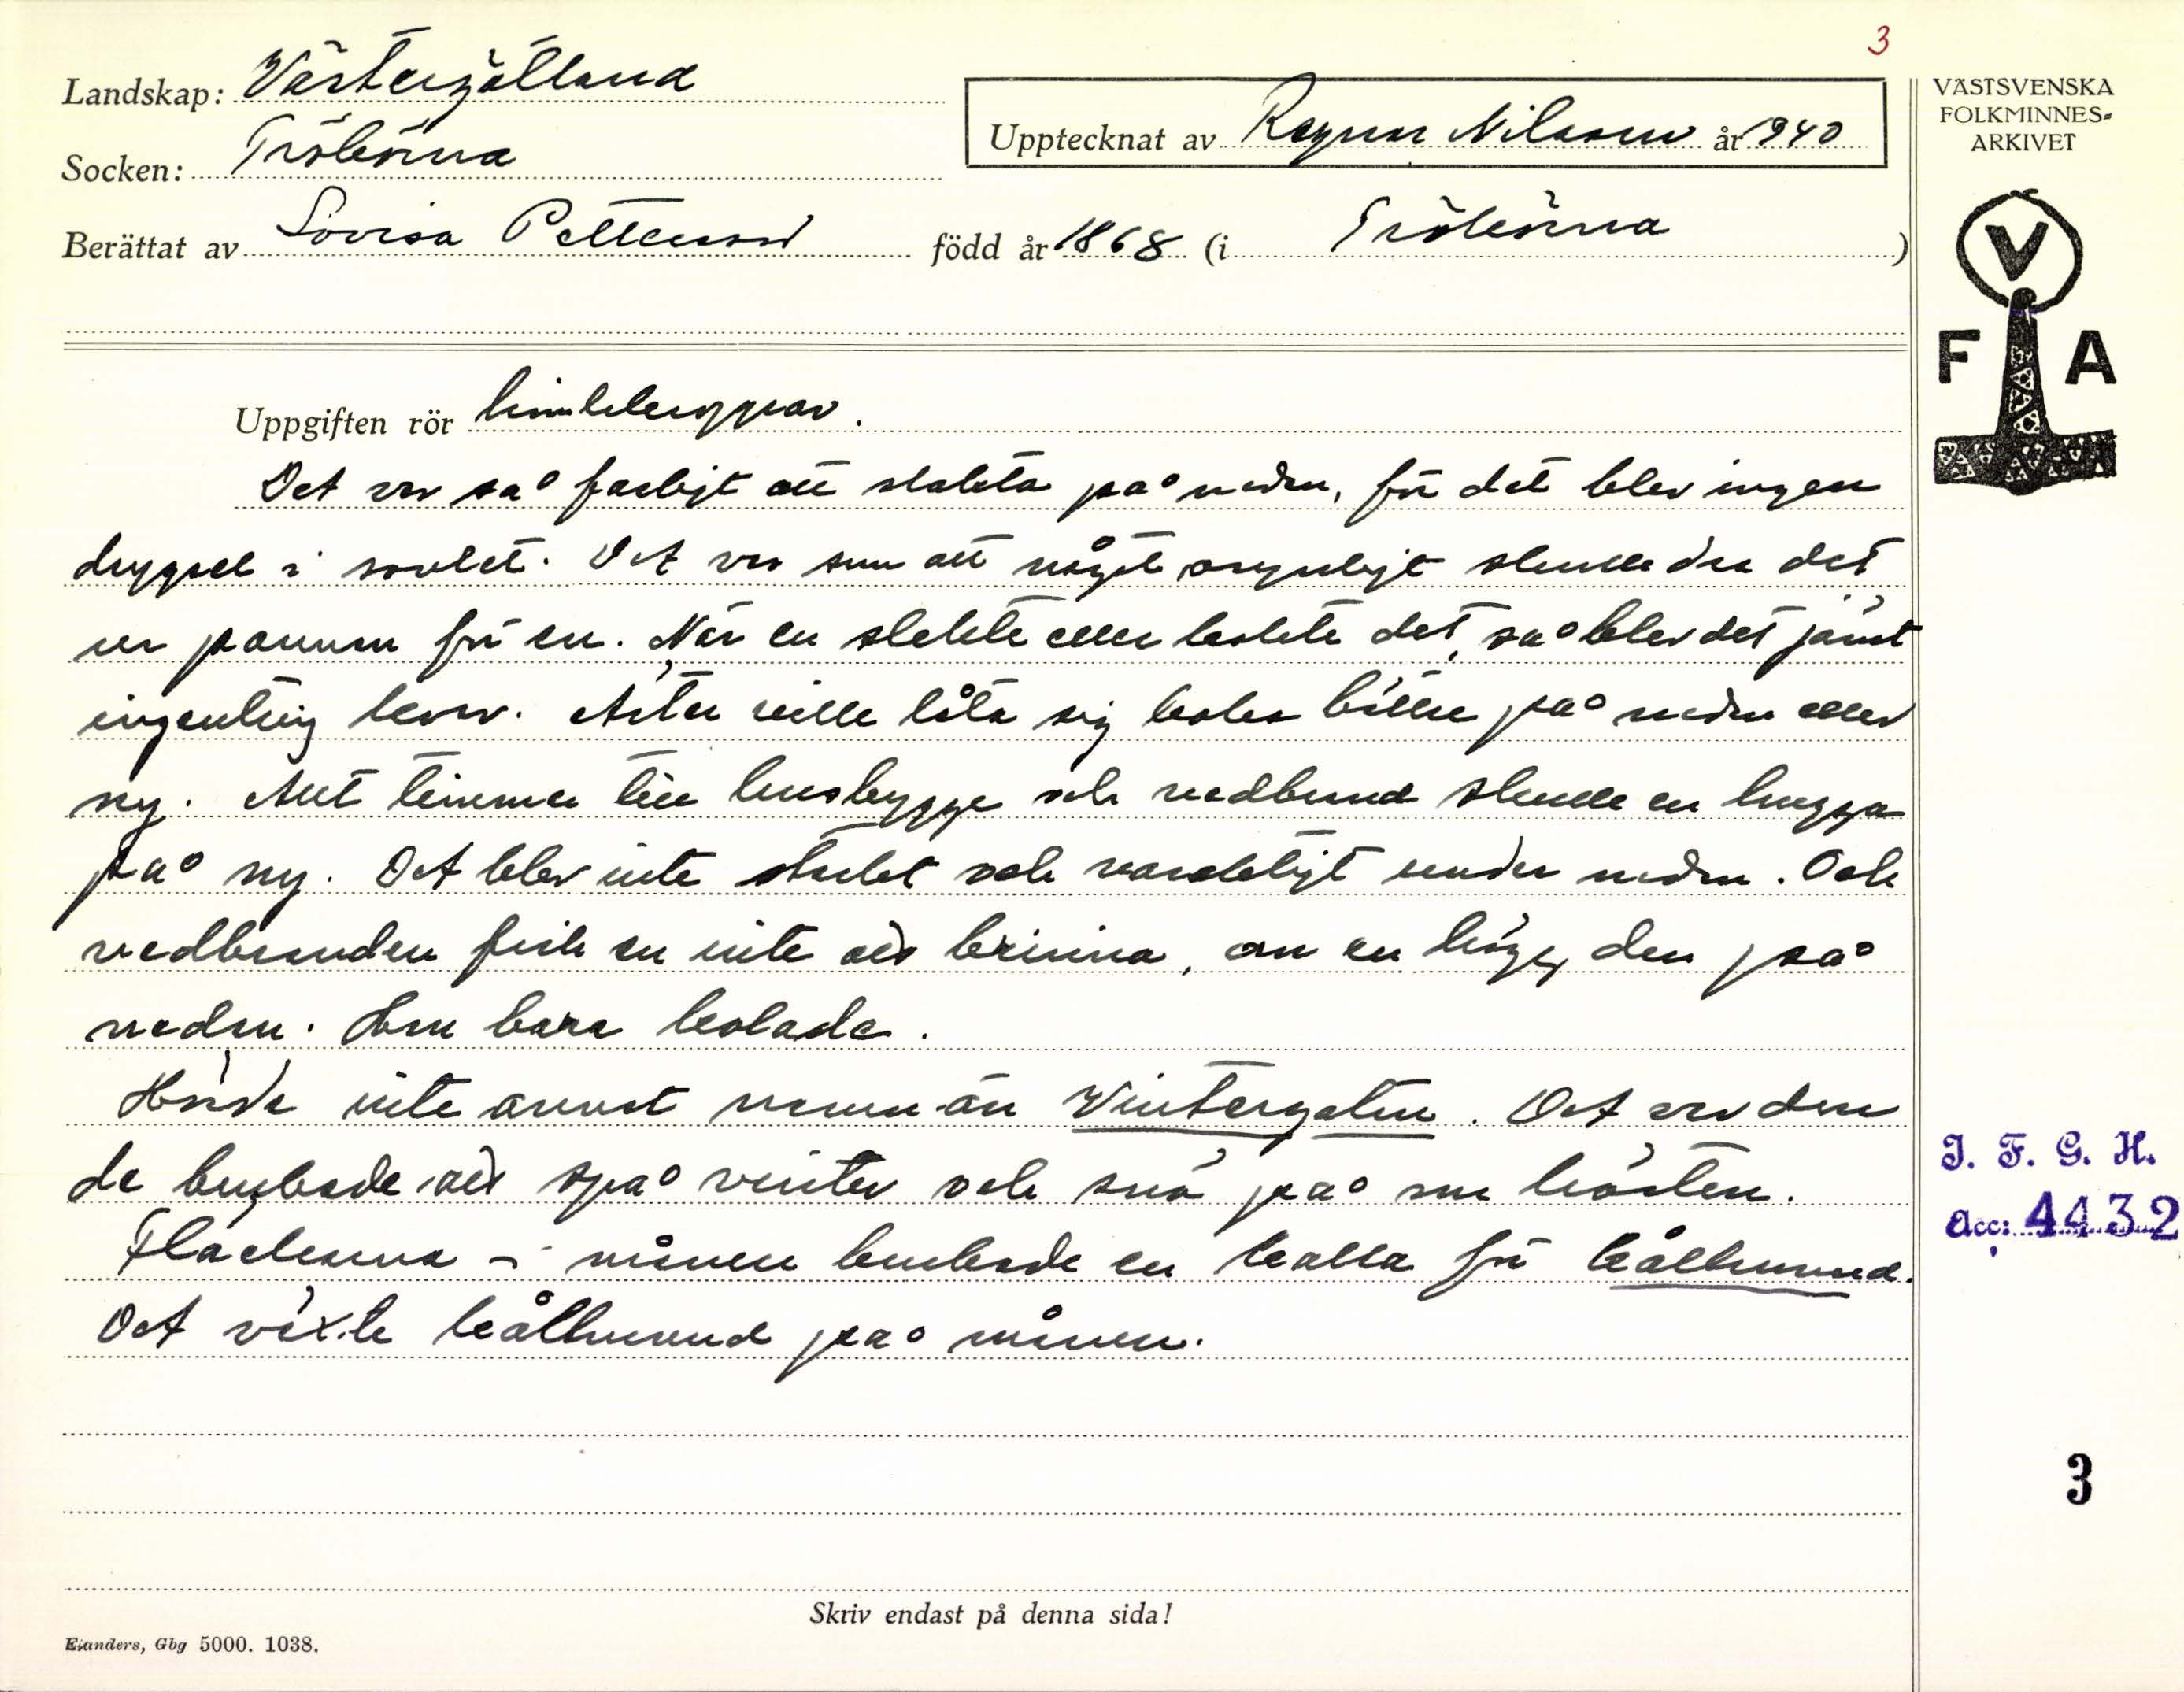 3
Landskap: Västergötland
Socken: Trökörna
Upptecknat av Ragnar Nilsson år 1940
Berättat av Lovisa Pettersson född år 1868 (i Trökörna)
VÄSTSVENSKA
FOLKMINNES=
ARKIVET
V
F A
Uppgiften rör himlakroppar.
Det var så farligt att slakta på nedan, för det blev ingen
drygsel i sovlet. Det var som att något osynligt skulle dra det
ur pannan för en. När en stekte eller kokte det, så blev det jämt
ingenting kvar. Ärter ville låta sig koka bättre på nedan eller
ny. Allt timmer till husbygge och vedbrand skulle en hugga
på ny. Det blev inte starkt och varaktigt under nedan. Och
vedbranden fick en inte att brinna, om en högg den på
nedan. Hon bara kolade.
Hörde inte annat namn än Vintergatan. Det var den
de brukade att spå vinter och snö på om hösten.
Fläckarna i månen brukade en kalla för kålhuvud.
Det växte kålhuvud på månen.
I. F. G. H.
Acc: 4432
3
Skriv endast på denna sida!
Elanders, Gbg 5000. 1038.